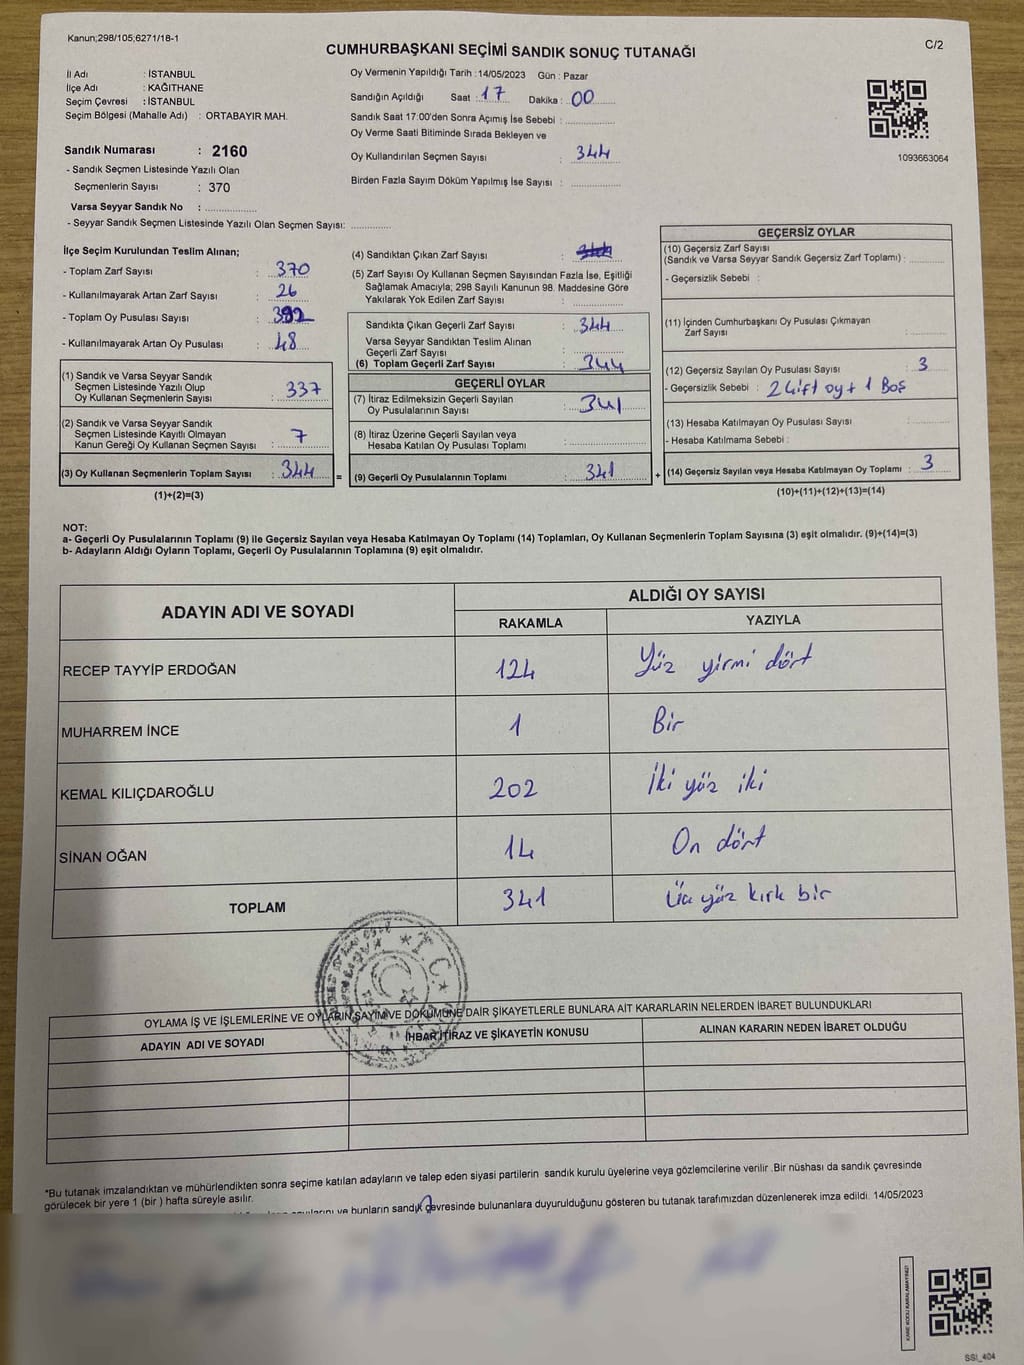 Kanun;298/105;6271/18-1
CUMHURBAŞKANI SEÇİMİ SANDIK SONUÇ TUTANAĞI
C/2
İl Adı : İSTANBUL
İlçe Adı : KAĞITHANE
Seçim Çevresi : İSTANBUL
Seçim Bölgesi (Mahalle Adı) : ORTABAYIR MAH.
Sandık Numarası : 2160
- Sandık Seçmen Listesinde Yazılı Olan
Seçmenlerin Sayısı : 370
Varsa Seyyar Sandık No :
- Seyyar Sandık Seçmen Listesinde Yazılı Olan Seçmen Sayısı:
Oy Vermenin Yapıldığı Tarih :14/05/2023 Gün : Pazar
Sandığın Açıldığı Saat : 17 Dakika : 00
Sandık Saat 17:00'den Sonra Açımış İse Sebebi :
Oy Verme Saati Bitiminde Sırada Bekleyen ve
Oy Kullandırılan Seçmen Sayısı : 344
Birden Fazla Sayım Döküm Yapılmış İse Sayısı :
1093663064
İlçe Seçim Kurulundan Teslim Alınan;
- Toplam Zarf Sayısı : 370
- Kullanılmayarak Artan Zarf Sayısı : 26
- Toplam Oy Pusulası Sayısı : 392
- Kullanılmayarak Artan Oy Pusulası : 48
(1) Sandık ve Varsa Seyyar Sandık
Seçmen Listesinde Yazılı Olup
Oy Kullanan Seçmenlerin Sayısı : 337
(2) Sandık ve Varsa Seyyar Sandık
Seçmen Listesinde Kayıtlı Olmayan
Kanun Gereği Oy Kullanan Seçmen Sayısı : 7
(3) Oy Kullanan Seçmenlerin Toplam Sayısı : 344 =
(1)+(2)=(3)
(4) Sandıktan Çıkan Zarf Sayısı : 344
(5) Zarf Sayısı Oy Kullanan Seçmen Sayısından Fazla İse, Eşitliği
Sağlamak Amacıyla; 298 Sayılı Kanunun 98. Maddesine Göre
Yakılarak Yok Edilen Zarf Sayısı :
Sandıkta Çıkan Geçerli Zarf Sayısı : 344
Varsa Seyyar Sandıktan Teslim Alınan
Geçerli Zarf Sayısı :
(6) Toplam Geçerli Zarf Sayısı : 344
GEÇERLİ OYLAR
(7) İtiraz Edilmeksizin Geçerli Sayılan
Oy Pusulalarının Sayısı : 341
(8) İtiraz Üzerine Geçerli Sayılan veya
Hesaba Katılan Oy Pusulası Toplamı :
(9) Geçerli Oy Pusulalarının Toplamı : 341 +
GEÇERSİZ OYLAR
(10) Geçersiz Zarf Sayısı
(Sandık ve Varsa Seyyar Sandık Geçersiz Zarf Toplamı) :
- Geçersizlik Sebebi :
(11) İçinden Cumhurbaşkanı Oy Pusulası Çıkmayan
Zarf Sayısı :
(12) Geçersiz Sayılan Oy Pusulası Sayısı : 3
- Geçersizlik Sebebi : 2 Çift oy + 1 Boş
(13) Hesaba Katılmayan Oy Pusulası Sayısı :
- Hesaba Katılmama Sebebi :
(14) Geçersiz Sayılan veya Hesaba Katılmayan Oy Toplamı : 3
(10)+(11)+(12)+(13)=(14)
NOT:
a- Geçerli Oy Pusulalarının Toplamı (9) ile Geçersiz Sayılan veya Hesaba Katılmayan Oy Toplamı (14) Toplamları, Oy Kullanan Seçmenlerin Toplam Sayısına (3) eşit olmalıdır. (9)+(14)=(3)
b- Adayların Aldığı Oyların Toplamı, Geçerli Oy Pusulalarının Toplamına (9) eşit olmalıdır.
ADAYIN ADI VE SOYADI
ALDIĞI OY SAYISI
RAKAMLA YAZIYLA
RECEP TAYYİP ERDOĞAN 124 Yüz yirmi dört
MUHARREM İNCE 1 Bir
KEMAL KILIÇDAROĞLU 202 İki yüz iki
SİNAN OĞAN 14 On dört
TOPLAM 341 Üç yüz kırk bir
T.C.
OYLAMA İŞ VE İŞLEMLERİNE VE OYLARIN SAYIM VE DÖKÜMÜNE DAİR ŞİKAYETLERLE BUNLARA AİT KARARLARIN NELERDEN İBARET BULUNDUKLARI
ADAYIN ADI VE SOYADI İHBAR İTİRAZ VE ŞİKAYETİN KONUSU ALINAN KARARIN NEDEN İBARET OLDUĞU
*Bu tutanak imzalandıktan ve mühürlendikten sonra seçime katılan adayların ve talep eden siyasi partilerin sandık kurulu üyelerine veya gözlemcilerine verilir .Bir nüshası da sandık çevresinde
görülecek bir yere 1 (bir ) hafta süreyle asılır.
ve bunların sandık çevresinde bulunanlara duyurulduğunu gösteren bu tutanak tarafımızdan düzenlenerek imza edildi. 14/05/2023
KARE KODU KARALAMAYINIZ!
SSI_404